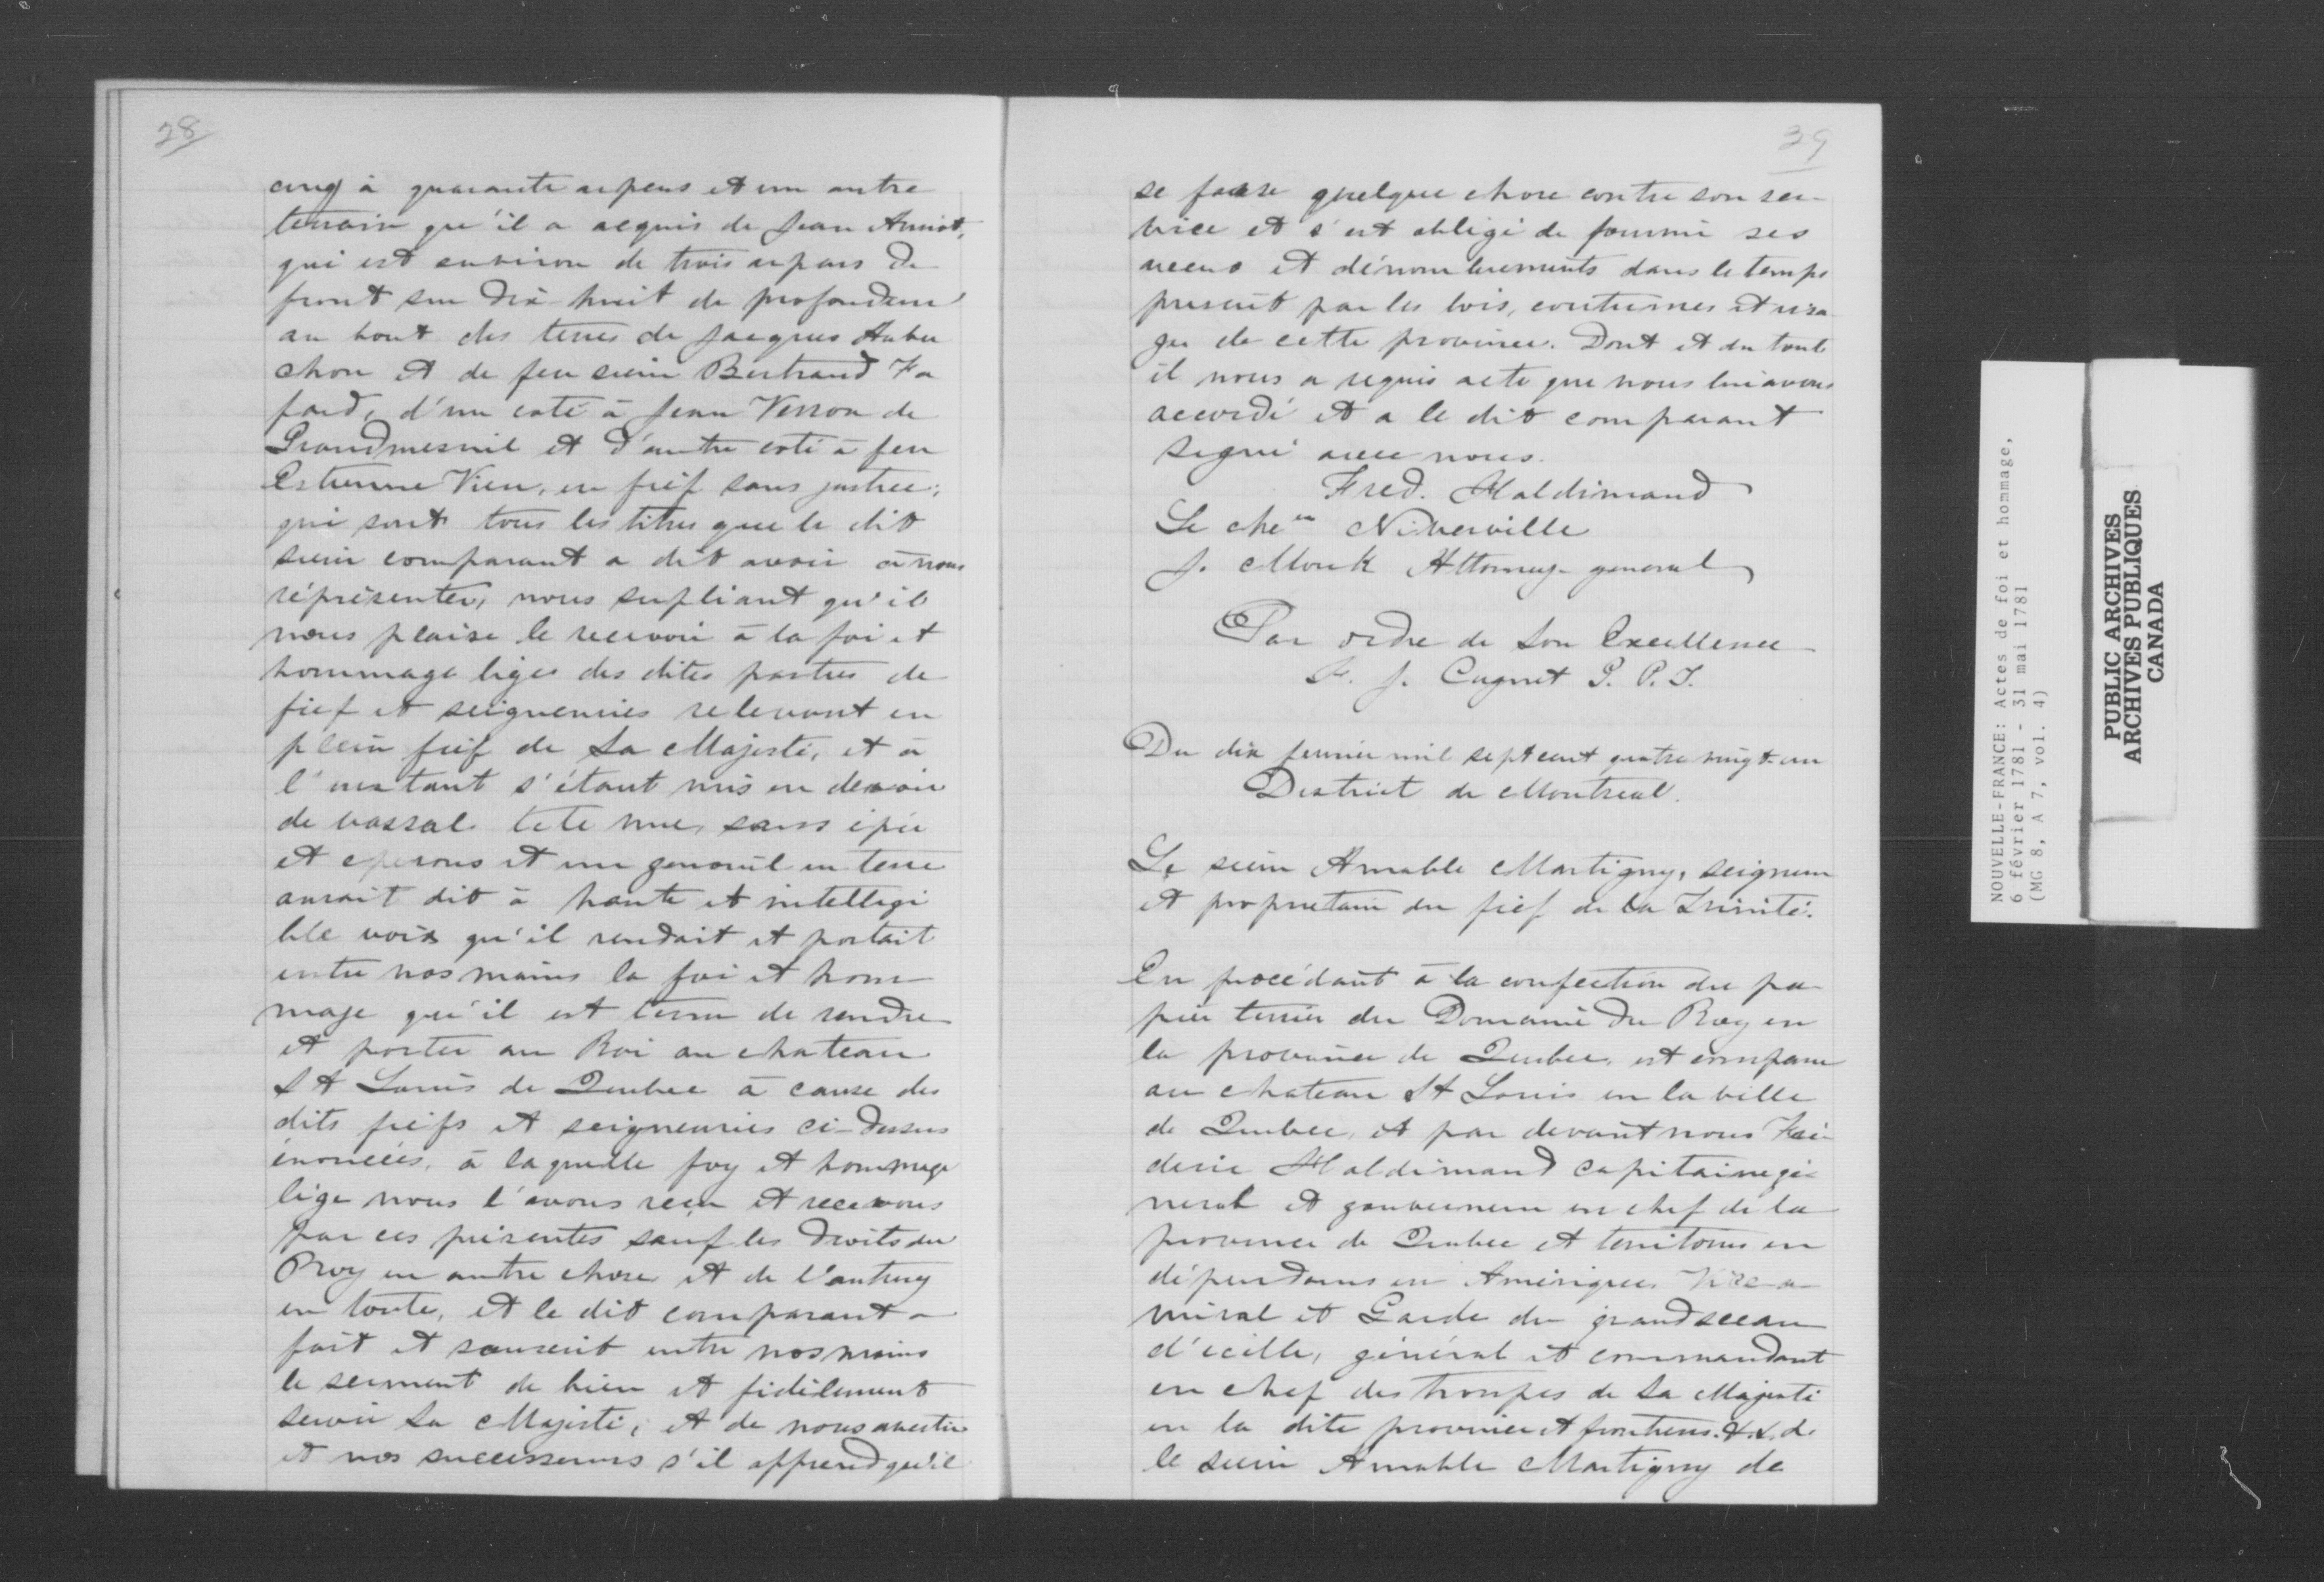 28
cinq à quarante arpens et un autre
terrain qu'il a acquis de Jean Amiot,
qui est environ de trois arpens de
front sur dix huit de profondeur
au bout des terres de Jacques Aubu
chon et de feu sieur Bertrand Fa
fard, d'un coté à Jean Verron de
Grandmesnil et d'autre coté à feu
Estienne Vien, en fief sans justice;
qui sont tous les titres que le dit
sieur comparant a dit avoir à nous
réprésenter, nous supliant qu'il
nous plaise le recevoir à la foi et
hommage liges des dites parties de
fief et seigneuries relevant en
plein fief de Sa Majesté, et à
l'instant s'étant mis en devoir
de vassal tete nue, sans épée
et eperons et un genouil en terre
aurait dit à haute et intelligi
ble voix qu'il rendait et portait
entre nos mains la foi et hom
mage qu'il est tenu de rendre
et porter au Roi au chateau
St Louis de Quebec à cause des
dits fiefs et seigneuries ci-dessus
énoncées, à laquelle foy et hommage
lige nous l'avons reçu et recevons
par ces présentes sauf les droits du
Roy en autre chose et de l'autruy
en toute, et le dit comparant a
fait et souscrit entre nos mains
le serment de bien et fidèlement
servir Sa Majesté, et de nous avertir
et nos successeurs s'il apprend qu'il
39
se fasse quelque chose contre son ser-
vice et s'est obligé de fournir ses
aveus et dénombrements dans le temps
prescrit par les lois, coutumes et usa
ges de cette province. Dont et du tout
il nous a requis acte que nous lui avons
accordé et a le dit comparant
signé avec nous.
Fred. Haldimand
Le cher Niverville
J. Monk Attorney general
Par ordre de Son Excellence
F. J. Cugnet G. P. T.
Du dix fevrier mil sept cent quatre vingt-un
District de Montreal.
Le sieur Amable Martigny, seigneur
et proprietaire du fief de la Trinité.
En procédant à la confection du pa-
pier terrier du Domaine du Roy en
la province de Quebec, est comparu
au chateau St Louis en la ville
de Quebec, et par devant nous Fré-
deric Haldimand capitaine gé-
neral et gouverneur en chef de la
province de Quebec et territoires en
dépendans en Amérique. Vice-a-
miral et Garde du grand sceau
d'icelle, général et commandant
en chef des troupes de Sa Majesté
en la dite province et frontieres. &.&.&.
le sieur Amable Martigny de
NOUVELLE-FRANCE: Actes de foi et hommage,
6 février 1781 - 31 mai 1781
(MG 8, A 7, vol. 4)
PUBLIC ARCHIVES
ARCHIVES PUBLIQUES
CANADA